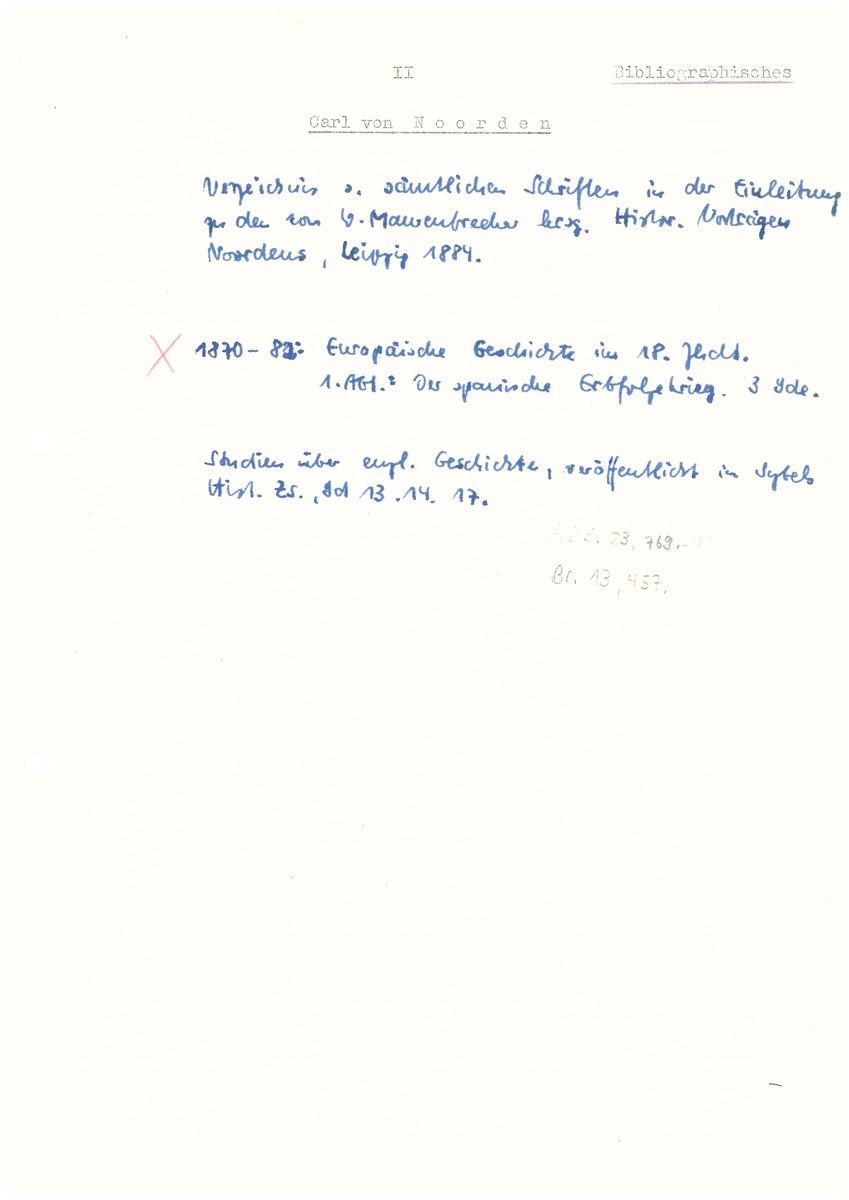 II
Bibliographisches
Carl von N o o r d e n
Verzeichnis s. sämtlichen Schriften in der Einleitung
zu den von W. Maurenbrecher hrsg. Histor. Vorträgen
Noordens, Leipzig 1884.
1870-82: Europäische Geschichte im 18. Jhdt.
1. Abt.: Der spanische Erbfolgekrieg. 3 Bde.
Studien über engl. Geschichte, veröffentlicht in Sybels
Hist. Zs., Bd 13. 14. 17.
23, 769.-
Br. 13, 457.